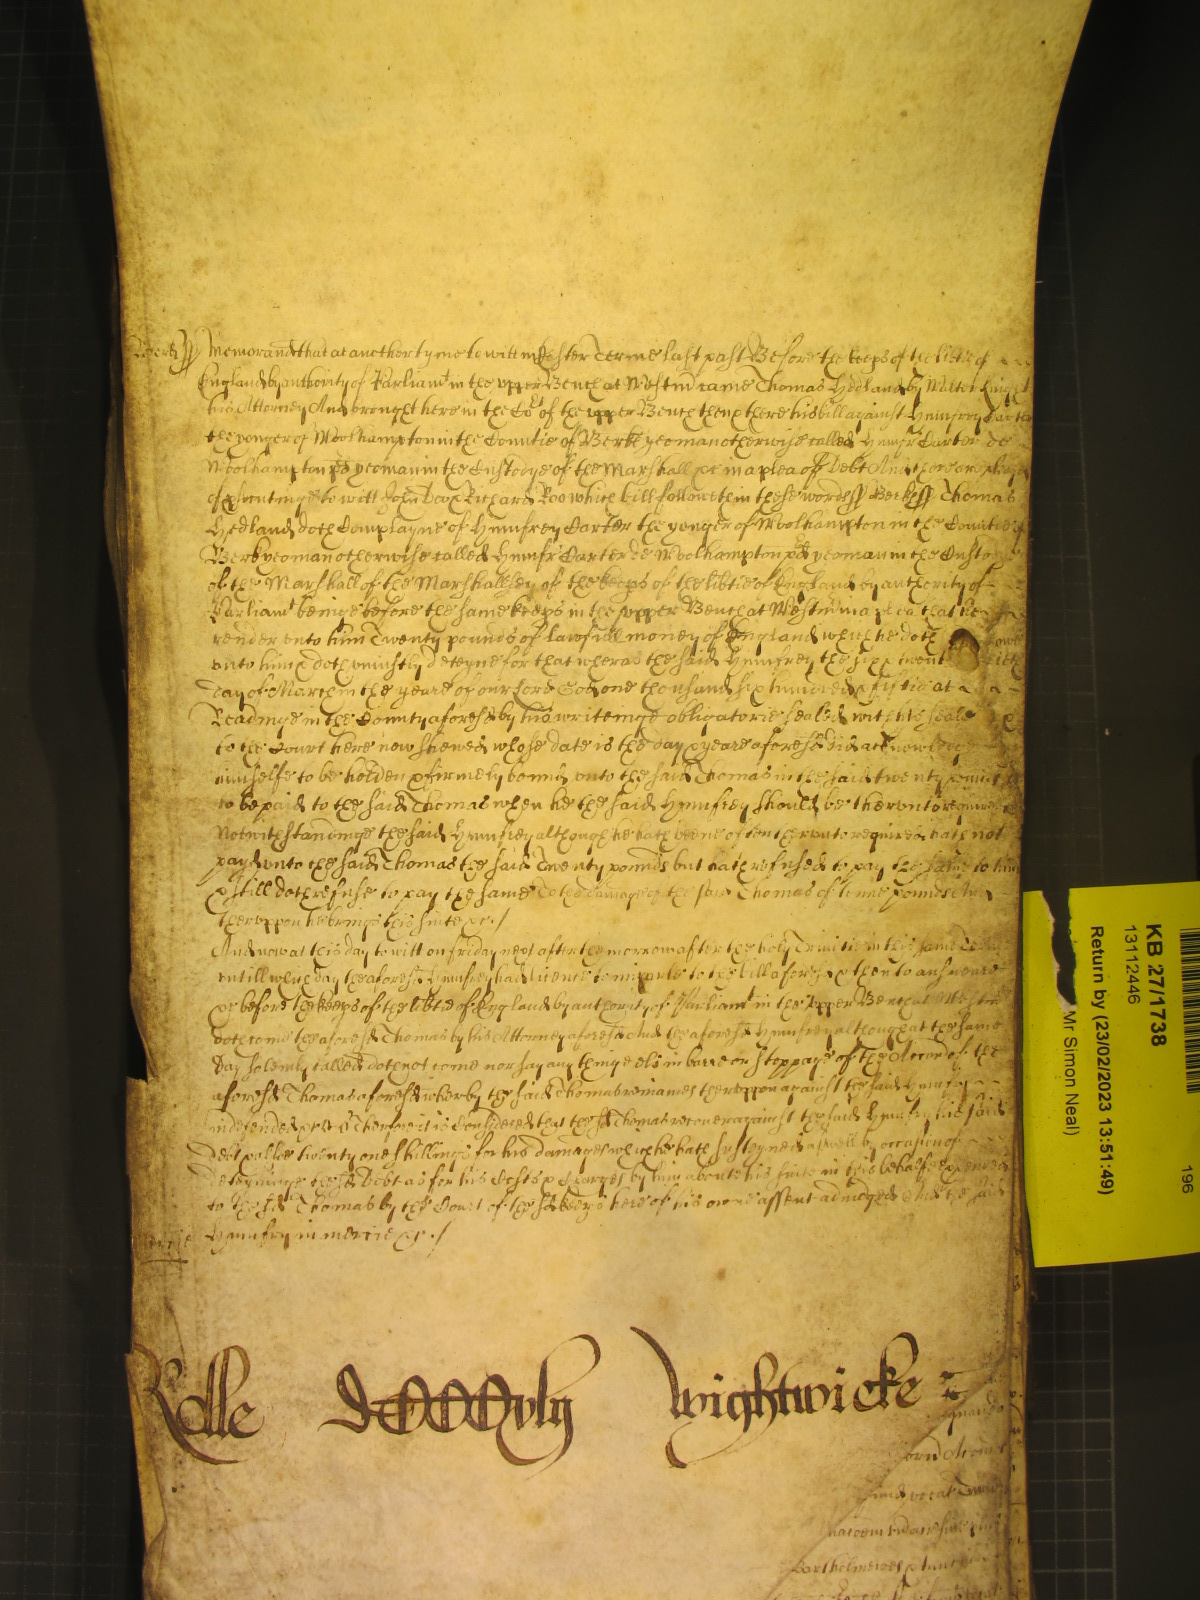 Berks ss Memorand that at another tyme to witt in Easter Terme last past Before the keeps of the libtie of
England by authority of Parliamt in the upper Bench at Westm came Thomas Hedland by Walter Knight
his Attorney And brought here in the Cort of the upper Bench then & there his bill against Humfrey Carter
the yonger of Woolhampton in the Countie of Berks yeoman otherwise called Humfr Carter de
Woolhampton pd yeoman in the Custodye of the Marshall &c in a plea of Debt And there are pledges
of prosecutinge to witt John Doo & Richard Roo which bill followeth in these words ss Berks ss Thomas
Hedland doth Complayne of Humfrey Carter the yonger of Woolhampton in the Countie of
Berk yeoman otherwise called Humfr Carter de Woolhampton pd yeoman in the Custody
of the Marshall of the Marshallsey of the keeps of the libtie of England by authority of
Parliamt beinge before the same keeps in the upper Bench at Westm in a plea that he
render unto him Twenty pounds of lawfull money of England which he doth owe
unto him & doth uniustly deteyne for that wheras the said Humfrey the six & twentieth
day of March in the yeare of our Lord God one thousand six hundred & fiftie at
Readinge in the County aforesd by his writeinge obligatorie sealed with his seale &
to the Court here now shewed whose date is the day & yeare aforesd did acknowledge
himselfe to be holden & firmely bound unto the said Thomas in the said twenty pounds
to be paid to the said Thomas when he the said Humfrey should be therunto required
Notwithstandinge the said Humfrey although he hath beene often therunto required hath not
payd unto the said Thomas the said Twenty pounds but hath refused to pay the same to him
& still doth refuse to pay the same To the damage of the said Thomas of tenne pounds And
theruppon he brings his suite &c./
And now at this day to witt on Friday next after the morrow after the holy Trinitie in this same Terme
untill which day the aforesd Humfrey had licence to imparle to the bill aforesd & then to answeare
&c before the keeps of the libtie of England by authority of Parliamt in the upper Bench at Westm
doth come the aforesd Thomas by his Attorney aforesd And the aforesd Humfrey although at the same
Day solemly called doth not come nor say any thinge els in barre or stoppage of the Accon of the
aforesd Thomas aforesd wherby the said Thomas remaines theruppon against the said Humfry
undefended &c Therfore it is Considered that the sd Thomas recover against the said Humfry his said
debt & allso twenty one shillings for his damages which he hath susteyned aswell by occasion of
deteyninge the sd Debt as for his Costs & Charges by him aboute his suite in this behalfe expended
to the sd Thomas by the Court of the sd keeps here of his owne assent adiudged And the said
mercie Humfry in mercie &c./
Rolle DCCCCxlv Wightwicke
KB 27/1738
13112446
Return by (23/02/2023 13:51:49)
Mr Simon Neal)
196